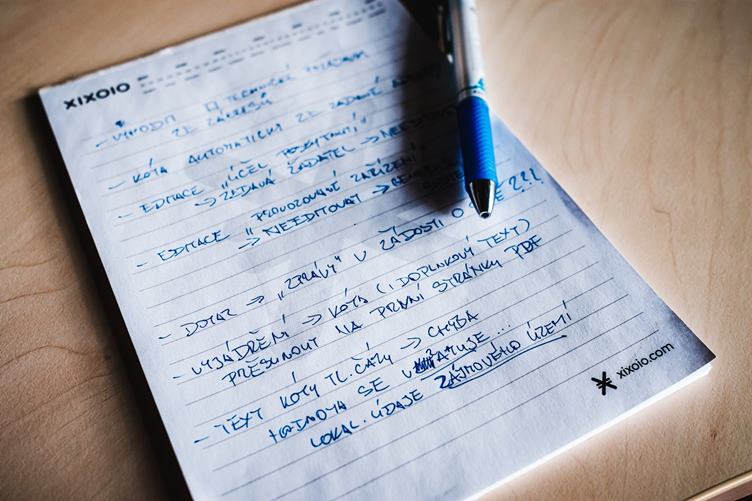 XIXOIO
- VYHODIT TECHNICKÉ
ZE ZÁKRESŮ
- KÓTA AUTOMATICKY ZE ZADANÉ
- EDITACE „ÚČEL POSKYTNUTÍ"
→ ZADÁVÁ ŽADATEL →
- EDITACE „PROVOZOVANÉ ZAŘÍZENÍ"
→ NEEDITOVAT →
- DOTAZ → „ZPRÁVY" V ŽÁDOSTI O ?!!
- VYJÁDŘENÍ → KÓTA (I DOPLŇKOVÝ TEXT)
PŘESUNOUT NA PRVNÍ STRÁNKU PDF
- TEXT KÓTY TL. ČÁRY → CHYBA
HODNOTA SE ...
LOKAL. ÚDAJE ZÁJMOVÉHO ÚZEMÍ
xixoio.com